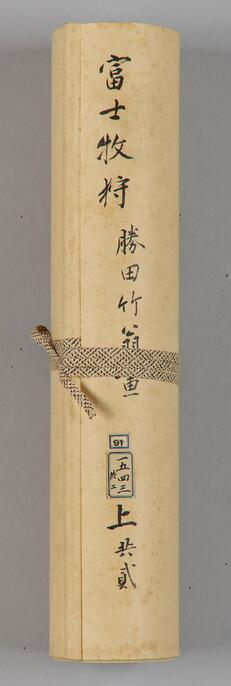 富士牧狩
勝田竹翁画
91
一五四三
共二
上共貳